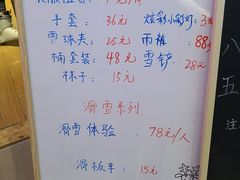 手套 36元 炫彩小彩灯 3元
雪球夹 25元 雨裤 88元
桶套装 48元 雪铲 28元
袜子 15元
滑雪系列
滑雪体验 78元/人
滑板车 15元
八
五
注